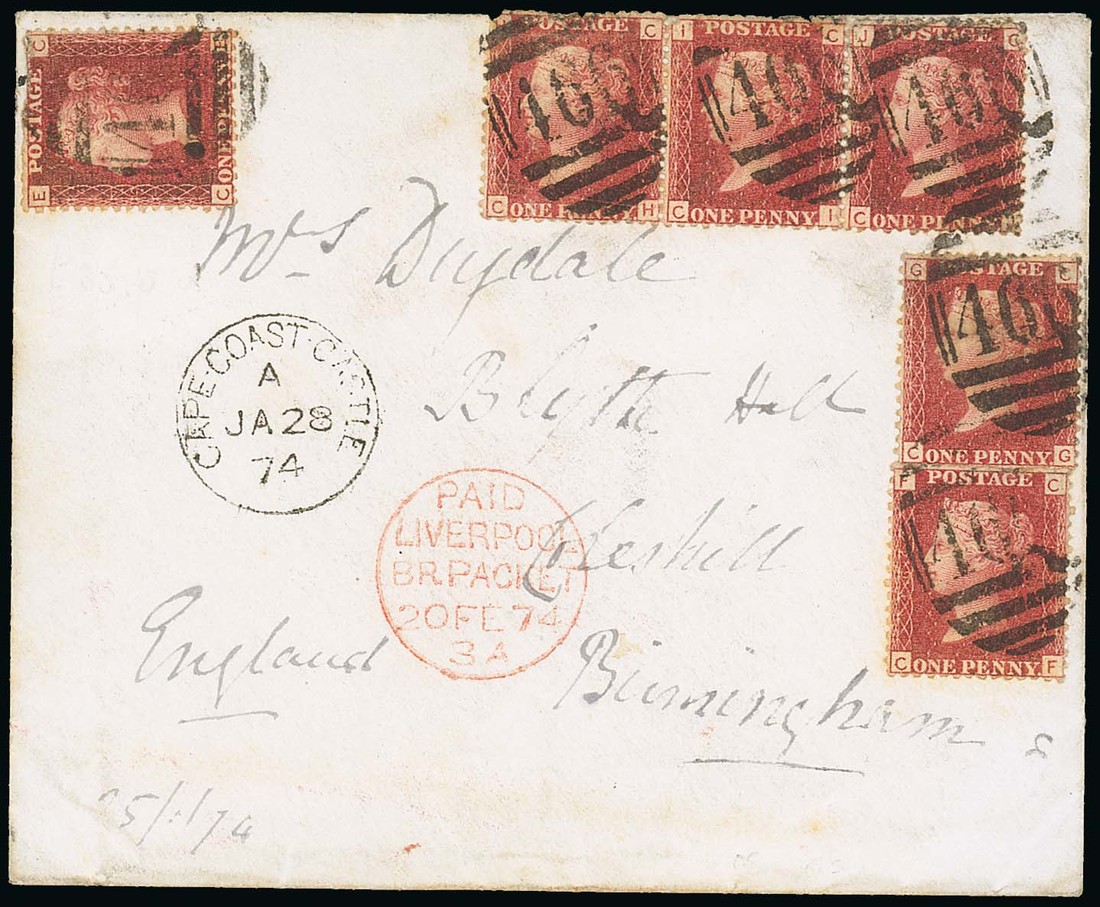 E POSTAGE C
C ONE PENNY E
POSTAGE C
C ONE PENNY H
I POSTAGE C
C ONE PENNY I
J POSTAGE C
C ONE PENNY
466
466
466
Mrs Dugdale
G POSTAGE C
466
C ONE PENNY G
CAPE·COAST·CASTLE
A
JA 28
74
Blyth Hall
F POSTAGE C
466
C ONE PENNY F
PAID
LIVERPOOL
BR.PACKET
20 FE 74
3A
Coleshill
England
Birmingham
25/1/74